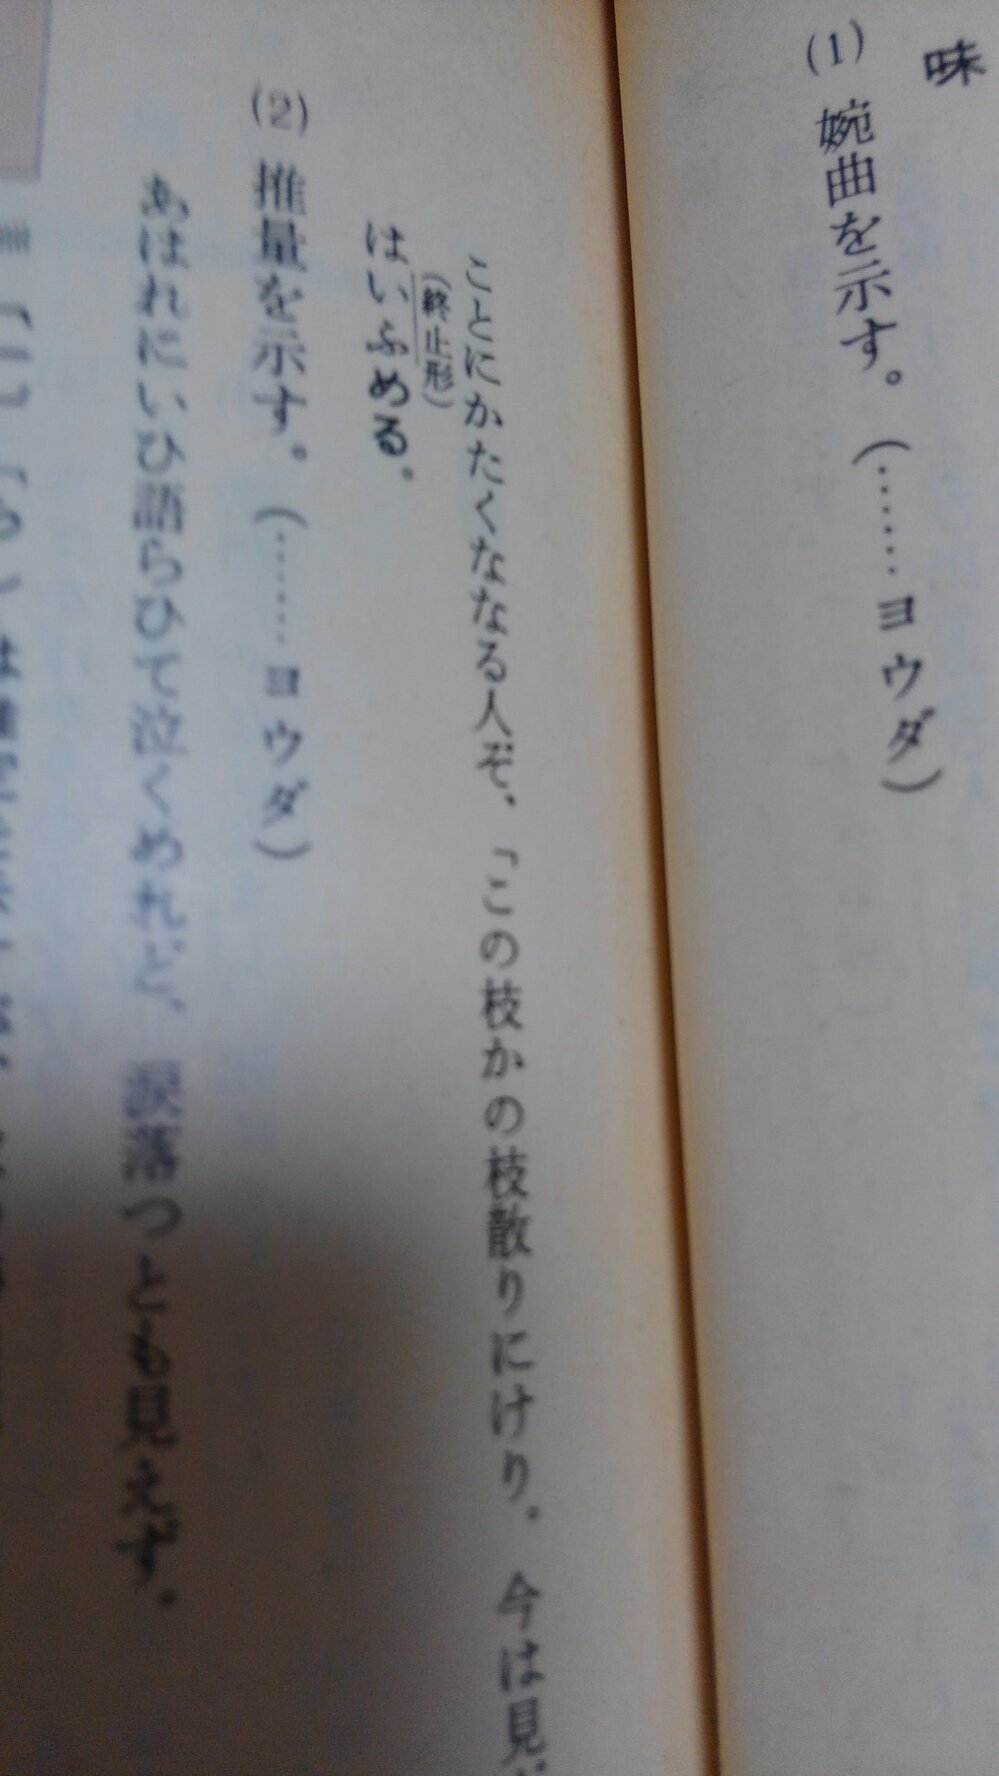 味
(1) 婉曲を示す。(……ヨウダ)
ことにかたくななる人ぞ、「この枝かの枝散りにけり。今は見
(終止形)
はいふめる。
(2) 推量を示す。(……ヨウダ)
あはれにいひ語らひて泣くめれど、涙落つとも見えず。